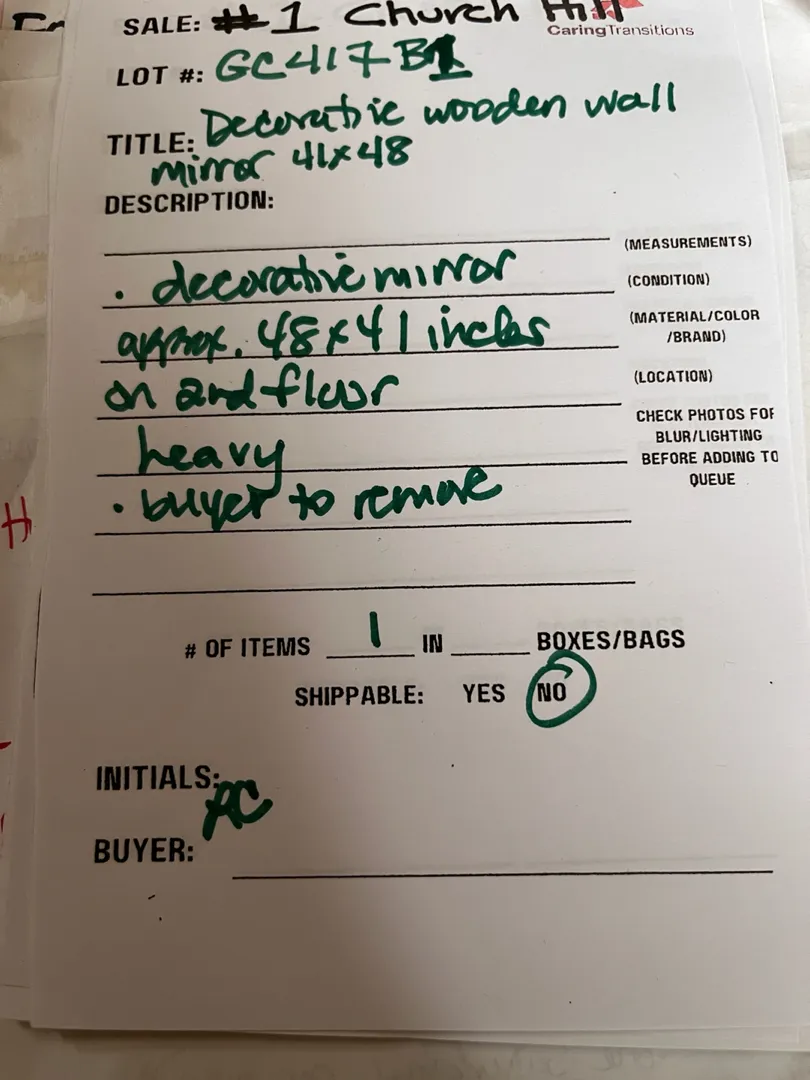 SALE: #1 Church Hill
CaringTransitions
LOT #: GC417B1
TITLE: Decorative wooden wall
mirror 41x48
DESCRIPTION:
(MEASUREMENTS)
. decorative mirror
(CONDITION)
approx. 48x41 inches
(MATERIAL/COLOR
/BRAND)
on 2nd floor
(LOCATION)
heavy
CHECK PHOTOS FOR
BLUR/LIGHTING
BEFORE ADDING TO
QUEUE
. buyer to remove
# OF ITEMS 1 IN ____ BOXES/BAGS
SHIPPABLE: YES NO
INITIALS: AC
BUYER:
H